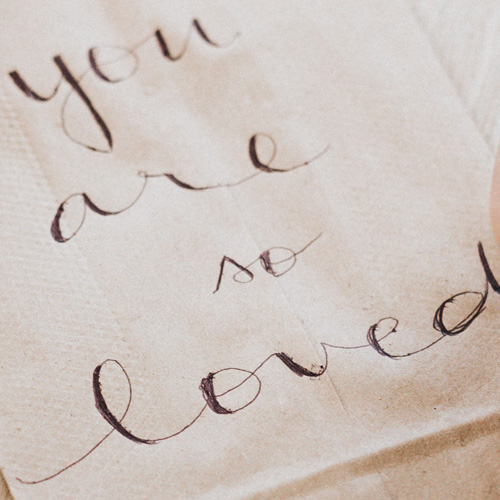 you
are
so
loved